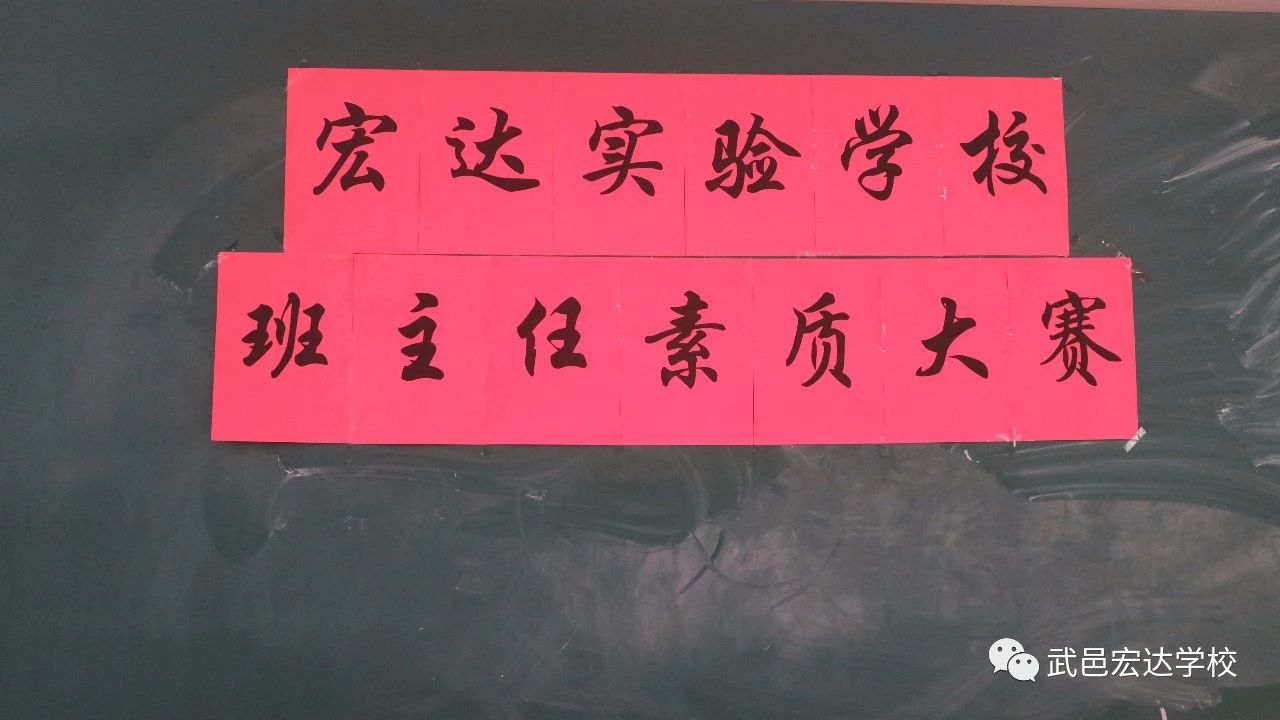 宏达实验学校
班主任素质大赛
武邑宏达学校